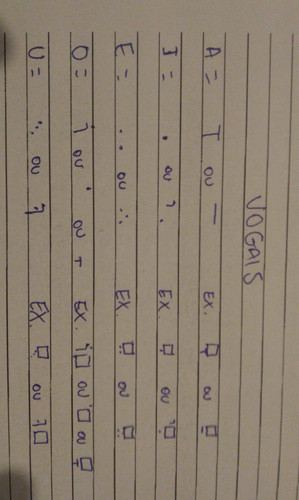 VOGAIS
A = T ou — EX. □ ou □
I = . ou EX. □ ou □
E = .. ou ∴ EX. □ ou □
O = ou ' ou + EX. □ ou □ ou □
U = ou EX. □ ou □